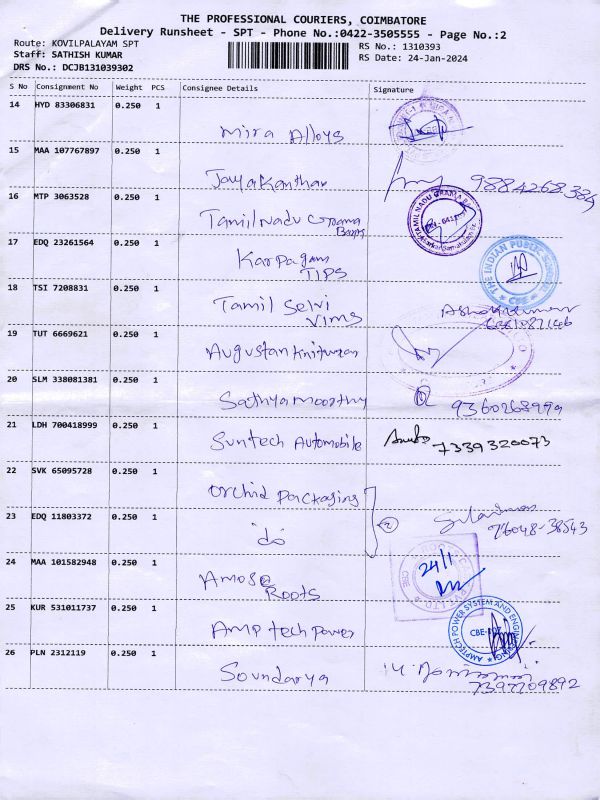 THE PROFESSIONAL COURIERS, COIMBATORE
Delivery Runsheet - SPT - Phone No.:0422-3505555 - Page No.:2
Route: KOVILPALAYAM SPT
Staff: SATHISH KUMAR
DRS No.: DCJB131039302
RS No.: 1310393
RS Date: 24-Jan-2024
S No Consignment No Weight PCS Consignee Details Signature
14 HYD 83306831 0.250 1
Mira Alloys
15 MAA 107767897 0.250 1
Jayakanthan 9884268384
16 MTP 3063528 0.250 1
Tamil Nadu Grama
Bank
TAMILNADU GRAMA
17 EDQ 23261564 0.250 1
Karpagam
TIPS
THE INDIAN PUBLIC SCHOOL
CBE
18 TSI 7208831 0.250 1
Tamil Selvi
VIMS
Ashokkumar
19 TUT 6669621 0.250 1
Augustan Knitwear
20 SLM 338081381 0.250 1
Sathyamoorthy
21 LDH 700418999 0.250 1
Suntech Automobile 7339320073
22 SVK 65095728 0.250 1
Orchid packaging
23 EDQ 11803372 0.250 1
do
76048-38543
24 MAA 101582948 0.250 1
Roots
CBE
24/1
25 KUR 531011737 0.250 1
Amp tech power
AMPTECH POWER SYSTEM AND ENGINEERING
CBE-107
26 PLN 2312119 0.250 1
Soundarya
7397709892